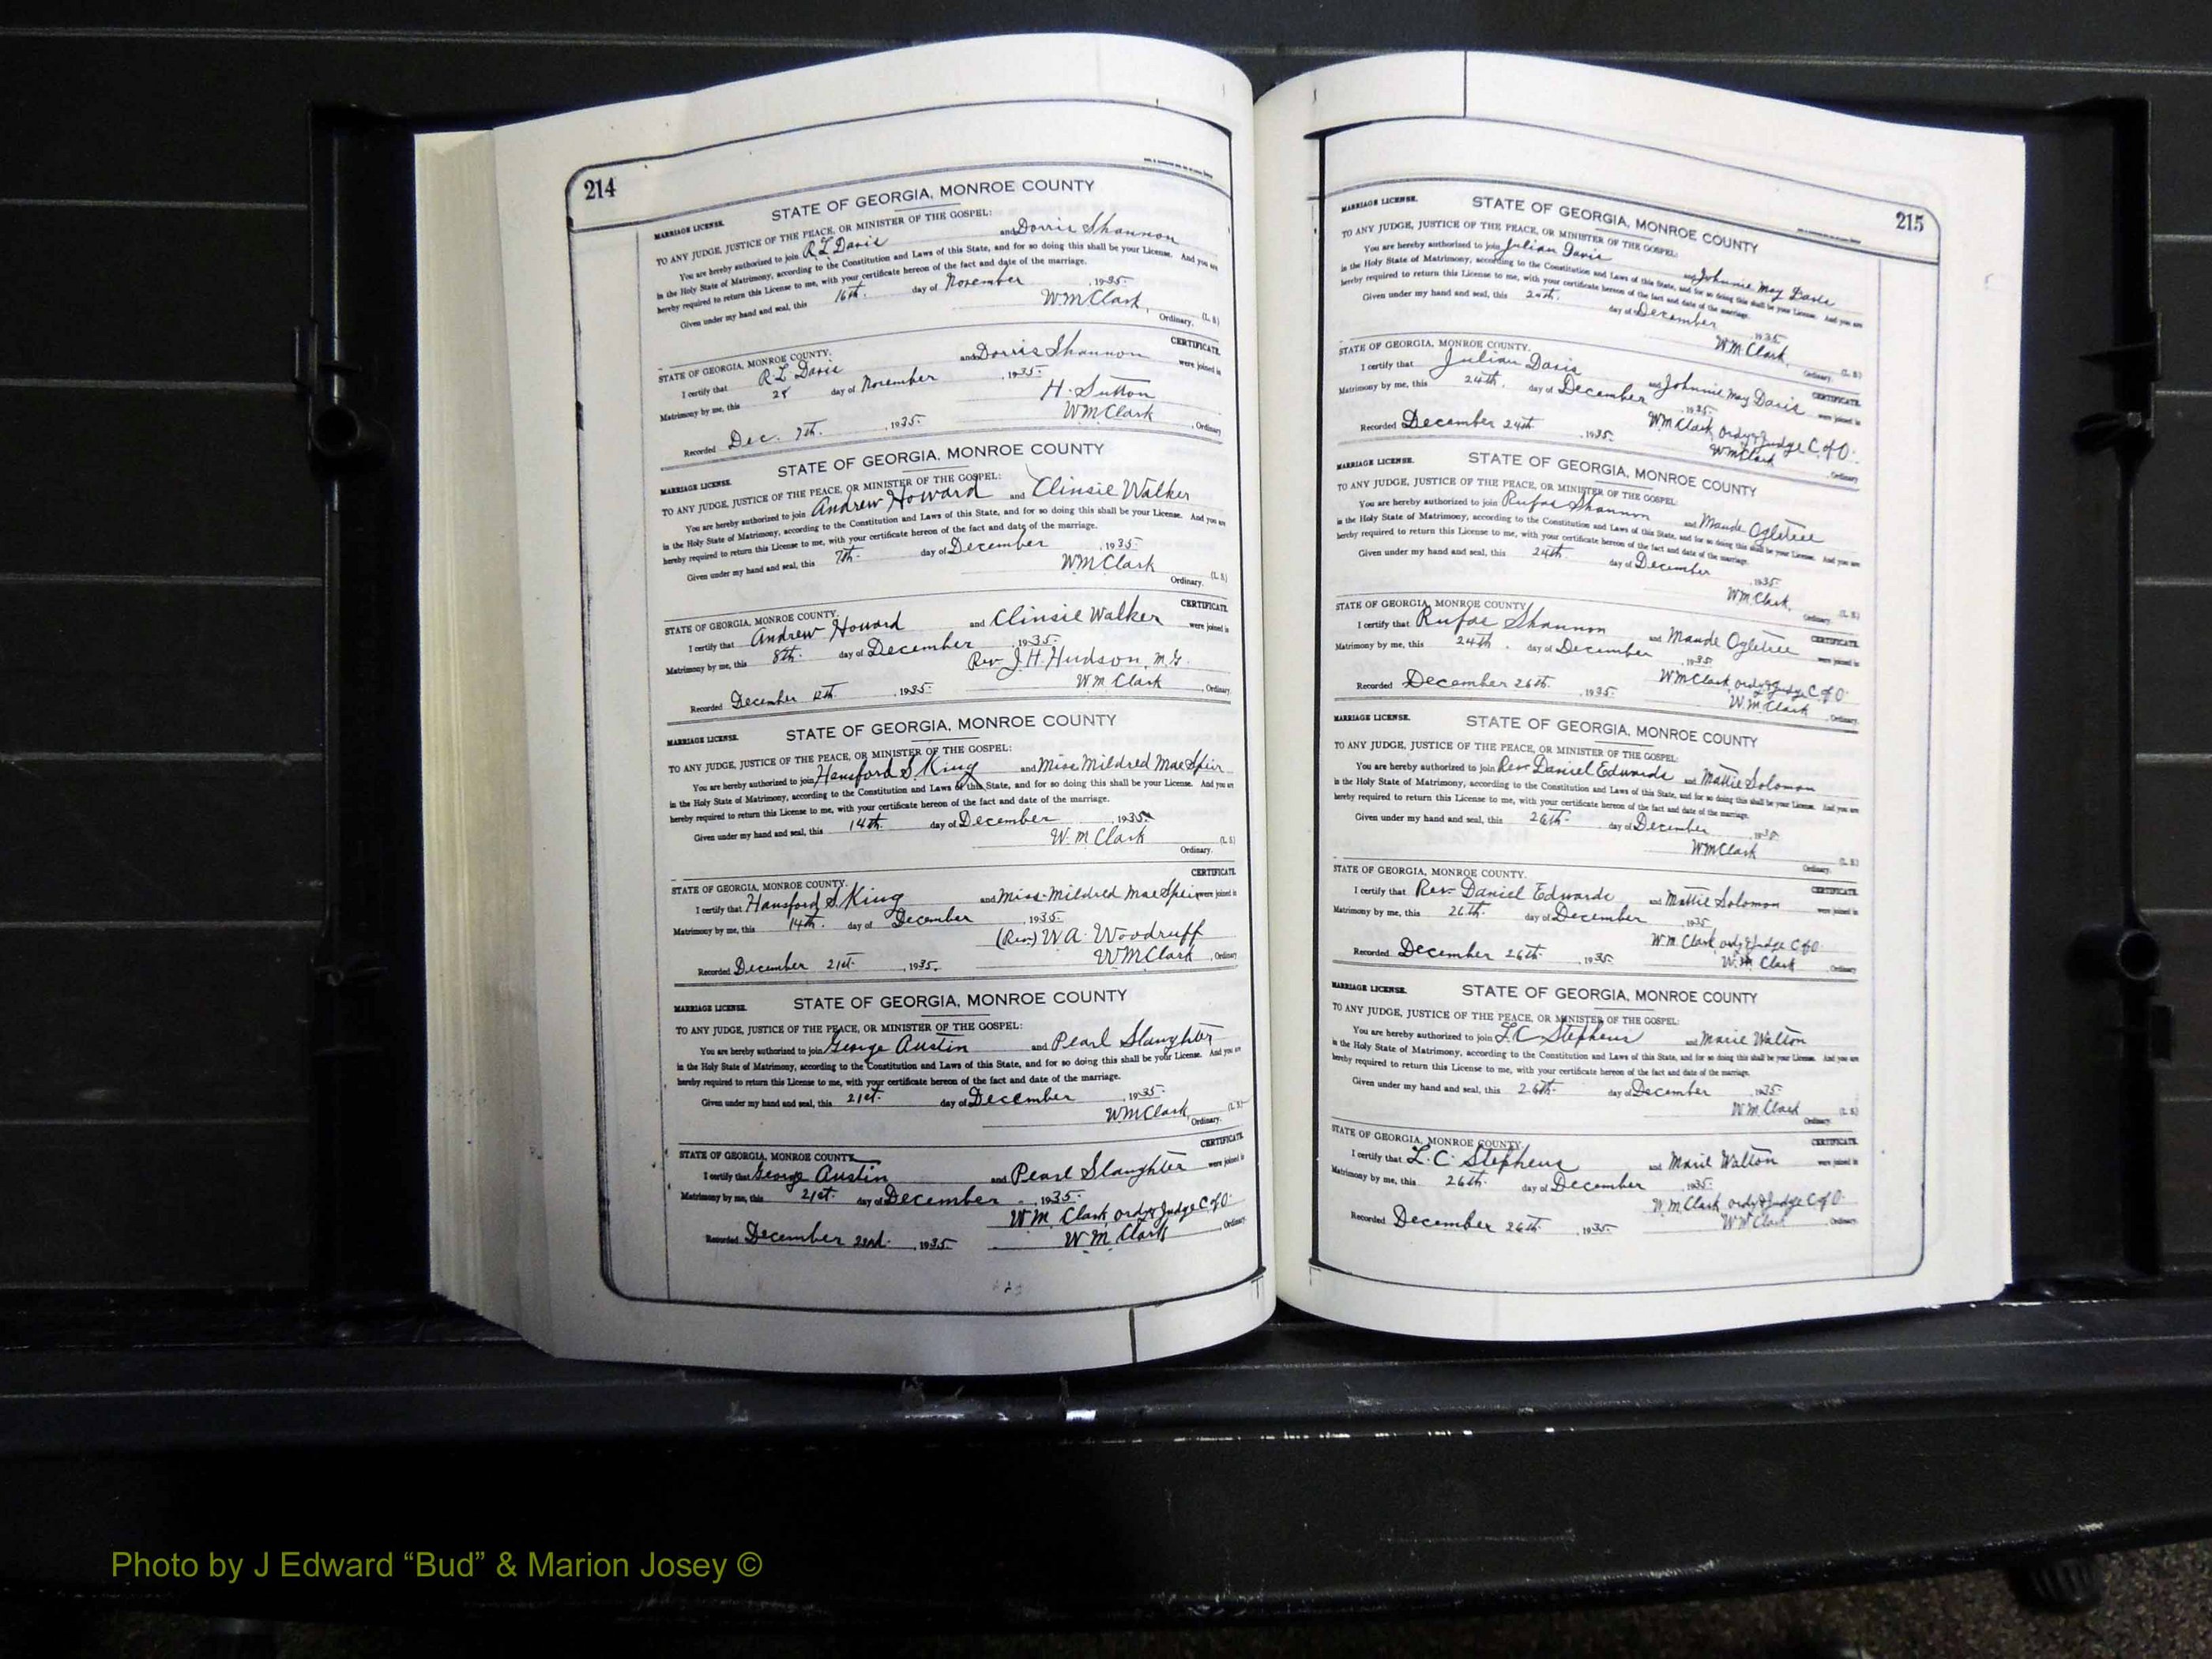 214
MARRIAGE LICENSE. STATE OF GEORGIA, MONROE COUNTY
TO ANY JUDGE, JUSTICE OF THE PEACE, OR MINISTER OF THE GOSPEL:
You are hereby authorized to join R L Davis and Dorris Shannon
in the Holy State of Matrimony, according to the Constitution and Laws of this State, and for so doing this shall be your License. And you are
hereby required to return this License to me, with your certificate hereon of the fact and date of the marriage.
Given under my hand and seal, this 16th. day of November, 1935.
W M Clark, (L. S.)
Ordinary.
STATE OF GEORGIA, MONROE COUNTY. CERTIFICATE
I certify that R. L Davis and Dorris Shannon were joined in
Matrimony by me, this 28 day of November, 1935.
H. Sutton
Recorded Dec. 7th. , 1935. W M Clark, Ordinary
MARRIAGE LICENSE. STATE OF GEORGIA, MONROE COUNTY
TO ANY JUDGE, JUSTICE OF THE PEACE, OR MINISTER OF THE GOSPEL:
You are hereby authorized to join Andrew Howard and Clinsie Walker
in the Holy State of Matrimony, according to the Constitution and Laws of this State, and for so doing this shall be your License. And you are
hereby required to return this License to me, with your certificate hereon of the fact and date of the marriage.
Given under my hand and seal, this 7th. day of December, 1935.
W M Clark (L. S.)
Ordinary.
STATE OF GEORGIA, MONROE COUNTY. CERTIFICATE
I certify that Andrew Howard and Clinsie Walker were joined in
Matrimony by me, this 8th. day of December, 1935.
Rev J. H. Hudson, M. G.
Recorded December 12th. , 1935. W M Clark, Ordinary.
MARRIAGE LICENSE. STATE OF GEORGIA, MONROE COUNTY
TO ANY JUDGE, JUSTICE OF THE PEACE, OR MINISTER OF THE GOSPEL:
You are hereby authorized to join Hansford S. King and Miss Mildred Mae Speir
in the Holy State of Matrimony, according to the Constitution and Laws of this State, and for so doing this shall be your License. And you are
hereby required to return this License to me, with your certificate hereon of the fact and date of the marriage.
Given under my hand and seal, this 14th. day of December, 1935
W. M Clark (L. S.)
Ordinary.
STATE OF GEORGIA, MONROE COUNTY. CERTIFICATE
I certify that Hansford S. King and Miss Mildred Mae Speir were joined in
Matrimony by me, this 14th. day of December, 1935.
(Rev) W A. Woodruff
Recorded December 21st. , 1935. W M Clark, Ordinary
MARRIAGE LICENSE. STATE OF GEORGIA, MONROE COUNTY
TO ANY JUDGE, JUSTICE OF THE PEACE, OR MINISTER OF THE GOSPEL:
You are hereby authorized to join George Austin and Pearl Slaughter
in the Holy State of Matrimony, according to the Constitution and Laws of this State, and for so doing this shall be your License. And you are
hereby required to return this License to me, with your certificate hereon of the fact and date of the marriage.
Given under my hand and seal, this 21st. day of December, 1935.
W M Clark, (L. S.)
Ordinary.
STATE OF GEORGIA, MONROE COUNTY. CERTIFICATE
I certify that George Austin and Pearl Slaughter were joined in
Matrimony by me, this 21st. day of December, 1935.
W M. Clark, ordy & Judge C of O.
Recorded December 22nd. , 1935 W M. Clark, Ordinary
215
MARRIAGE LICENSE. STATE OF GEORGIA, MONROE COUNTY
TO ANY JUDGE, JUSTICE OF THE PEACE, OR MINISTER OF THE GOSPEL:
You are hereby authorized to join Julian Davis and Johnnie May Davis
in the Holy State of Matrimony, according to the Constitution and Laws of this State, and for so doing this shall be your License. And you are
hereby required to return this License to me, with your certificate hereon of the fact and date of the marriage.
Given under my hand and seal, this day of December, 1935
W M. Clark, (L. S.)
Ordinary.
STATE OF GEORGIA, MONROE COUNTY. CERTIFICATE
I certify that Julian Davis and Johnnie May Davis were joined in
Matrimony by me, this 24th. day of December, 1935.
W M Clark, ordy & Judge C of O.
Recorded December 24th , 1935. W M Clark Ordinary
MARRIAGE LICENSE. STATE OF GEORGIA, MONROE COUNTY
TO ANY JUDGE, JUSTICE OF THE PEACE, OR MINISTER OF THE GOSPEL:
You are hereby authorized to join Rufus Shannon and Maude Ogletree
in the Holy State of Matrimony, according to the Constitution and Laws of this State, and for so doing this shall be your License. And you are
hereby required to return this License to me, with your certificate hereon of the fact and date of the marriage.
Given under my hand and seal, this 24th day of December, 1935.
W M. Clark, (L. S.)
Ordinary.
STATE OF GEORGIA, MONROE COUNTY. CERTIFICATE
I certify that Rufus Shannon and Maude Ogletree were joined in
Matrimony by me, this 24th. day of December, 1935
W M Clark, ordy & Judge C of O.
Recorded December 26th. , 1935. W. M. Clark, Ordinary.
MARRIAGE LICENSE. STATE OF GEORGIA, MONROE COUNTY
TO ANY JUDGE, JUSTICE OF THE PEACE, OR MINISTER OF THE GOSPEL:
You are hereby authorized to join Rev Daniel Edwards and Mattie Solomon
in the Holy State of Matrimony, according to the Constitution and Laws of this State, and for so doing this shall be your License. And you are
hereby required to return this License to me, with your certificate hereon of the fact and date of the marriage.
Given under my hand and seal, this 26th. day of December, 1935
W M Clark (L. S.)
Ordinary.
STATE OF GEORGIA, MONROE COUNTY. CERTIFICATE
I certify that Rev Daniel Edwards and Mattie Solomon were joined in
Matrimony by me, this 26th. day of December, 1935
W M. Clark, ordy & Judge C of O
Recorded December 26th. , 1935. W. M Clark Ordinary
MARRIAGE LICENSE. STATE OF GEORGIA, MONROE COUNTY
TO ANY JUDGE, JUSTICE OF THE PEACE, OR MINISTER OF THE GOSPEL:
You are hereby authorized to join L. C Stephens and Marie Walton
in the Holy State of Matrimony, according to the Constitution and Laws of this State, and for so doing this shall be your License. And you are
hereby required to return this License to me, with your certificate hereon of the fact and date of the marriage.
Given under my hand and seal, this 26th. day of December, 1935.
W M. Clark (L. S.)
Ordinary.
STATE OF GEORGIA, MONROE COUNTY. CERTIFICATE
I certify that L. C. Stephens and Marie Walton were joined in
Matrimony by me, this 26th. day of December, 1935.
W. M. Clark, ordy & Judge C of O.
Recorded December 26th. , 1935. W M Clark Ordinary
Photo by J Edward “Bud” & Marion Josey ©